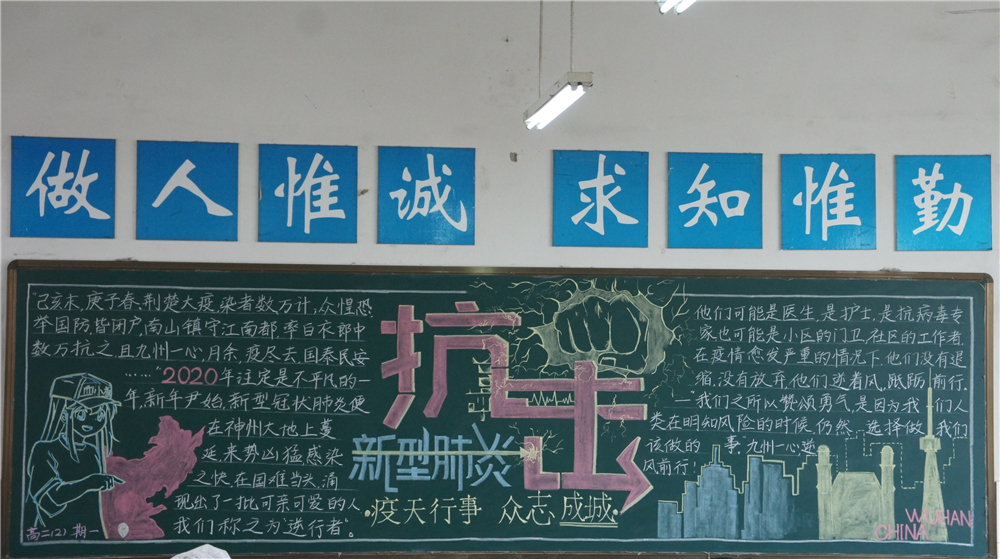 做人惟诚 求知惟勤
己亥末,庚子春,荆楚大疫,染者数万计,众惶恐,
举国防,皆闭户,南山镇守江南都,率白衣郎中
数万抗之,且九州一心,月余,疫尽去,国泰民安
……"2020年注定是不平凡的一
年,新年尹始,新型冠状肺炎便
在神州大地上蔓
延来势凶猛,感染
之快,在国难当头,涌
现出了一批可亲可爱的人
我们称之为"逆行者"。
高二(2) 期一
抗击
新型肺炎
·疫天行事 众志成城·
他们可能是医生,是护士,是抗病毒专
家也可能是小区的门卫,社区的工作者,
在疫情愈发严重的情况下,他们没有退
缩,没有放弃,他们逆着风,踱防前行,
"我们之所以赞颂勇气,是因为我们人
类在明知风险的时候,仍然选择做我们
该做的事,九州一心,逆
风前行!
WUHAN
CHINA